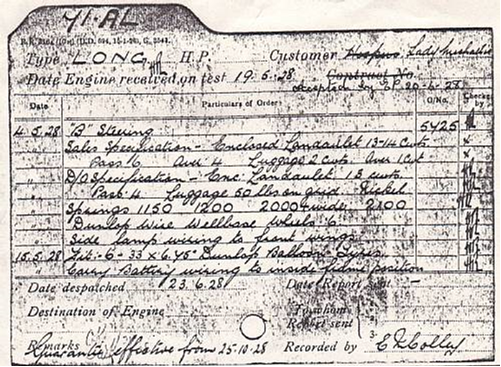 71·AL
Type LONG H.P. Customer Lady
Date Engine received on test 19·5·28 Contract No.
by 20-6-28
Date Particulars of Order O/No. Checked by
4.5.28 "B" Steering 5425
Sales Specification - Enclosed Landaulet 13-14 Cwts
Pass 6 Over 4 Luggage 2 Cwts. Over 1 Cwt
D/O Specification - Enc. Landaulet 13 cwts
Pass 4 Luggage 50 lbs on grid
Springs 1150 1200 2000 2100
Dunlop Wire Wellbase Wheels 6
Side lamp wiring to front wings
15.5.28 Fit - 6 - 33 x 6.75" Dunlop Balloon Tyres
Carry Battery wiring to inside frame position
Date despatched 23.6.28 Date Report sent -
Destination of Engine To whom
Report sent
Remarks Guarantee effective from 25-10-28 Recorded by